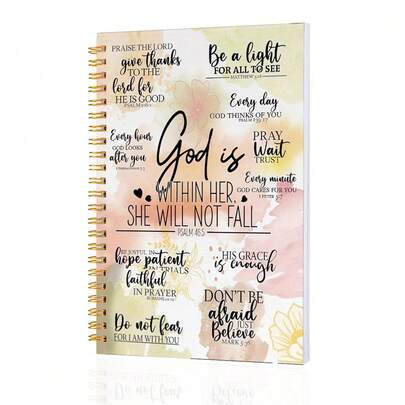 PRAISE THE LORD
give thanks
TO THE
lord for
HE IS GOOD
Be a light
FOR ALL TO SEE
Every day
GOD THINKS OF YOU
Every hour
GOD LOOKS
after you
God is
WITHIN HER,
SHE WILL NOT FALL
PSALM 46:5
PRAY
Wait
TRUST
Every minute
GOD CARES FOR YOU
1 PETER 5:7
BE JOYFUL IN
hope patient
TRIALS
faithful
IN PRAYER
HIS GRACE
is enough
DON'T BE
afraid
JUST
Believe
MARK 5:36
Do not fear
FOR I AM WITH YOU